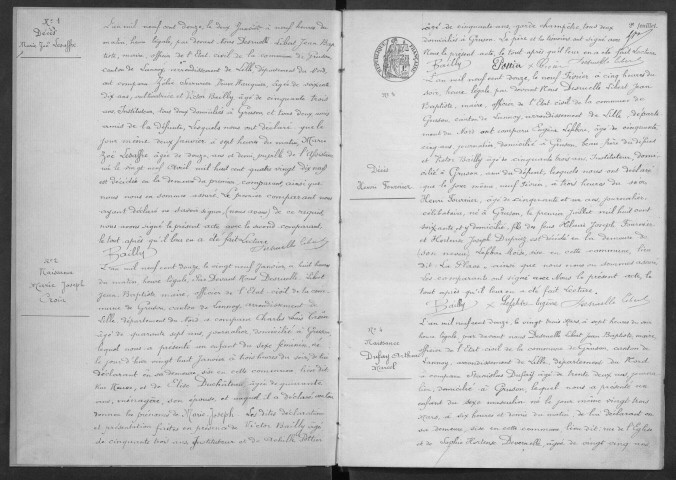 N° 1
Décès
Marie Zoé Lesaffre
L'an mil neuf cent douze, le deux Janvier à neuf heures du
matin heure légale, par devant Nous Desruelle Libert Jean Bap-
tiste, maire, officier de l'Etat civil de la commune de Gruson
canton de Lannoy, arrondissement de Lille, département du Nord
ont comparu
dix ans, cultivatrice et Victor Bailly âgé de cinquante trois
ans, Instituteur, tous deux domiciliés à Gruson et tous deux
amis de la défunte, lesquels nous ont déclaré que le
jour même, deux Janvier, à sept heures du matin, Marie
Zoé Lesaffre, âgée de douze ans et demi, pupille de l'Assistance
née le vingt neuf Avril mil huit cent quatre vingt dix neuf
est décédée en la demeure du premier comparant, ainsi que
nous nous en sommes assuré. Le premier comparant
ayant déclaré ne savoir signer, de ce requis,
nous avons signé le présent acte avec le second comparant,
le tout après qu'il leur en a été fait Lecture
Bailly Desruelle Libert
N° 2
Naissance
Marie Joseph
Croïn
L'an mil neuf cent douze, le vingt neuf Janvier, à huit heures
du matin heure légale, Par Devant Nous Desruelle Libert
Jean Baptiste maire, officier de l'Etat civil de la commune
de Gruson canton de Lannoy, arrondissement de
Lille, département du Nord a comparu Charles Louis
âgé de quarante sept ans, journalier, domicilié à Gruson
lequel nous a présenté un enfant du sexe féminin, né
le jour d'hier vingt huit Janvier à trois heures du soir, de lui
déclarant en sa demeure, sise en cette commune, lieu dit
et de Elise Duchâteau, âgée de quarante
ans, ménagère, son épouse, et auquel il a déclaré vouloir
donner les prénoms de Marie Joseph. Les dites déclaration
et présentation faites en présence de Victor Bailly âgé
de cinquante trois ans Instituteur et de Achille
âgé de cinquante ans, garde champêtre, tous deux
domiciliés à Gruson. Le père et les témoins ont signé avec
Nous le présent acte, le tout après qu'il leur en a été fait Lecture
Bailly Desruelle Libert
N° 3
Décès
Henri Fournier
L'an mil neuf cent douze, le neuf Février à cinq heures du
soir, heure légale par devant Nous Desruelle Libert Jean
Baptiste, maire, officier de l'Etat civil de la commune de
Gruson, canton de Lannoy, arrondissement de Lille, départe-
ment du Nord ont comparu Eugène Lefebvre, âgé de cinquante
cinq ans, journalier domicilié à Gruson, beau frère du défunt
et Victor Bailly âgé de cinquante trois ans Instituteur, domi-
cilié à Gruson, ami du défunt, lesquels nous ont déclaré
que le jour même neuf Février, à trois heures du soir
Henri Fournier, âgé de cinquante et un ans, journalier,
célibataire, né à Gruson, le premier Juillet mil huit cent
soixante, y domicilié, fils de feus Henri Joseph Fournier
et Hortense Joseph Dupriez est décédé en la demeure de
son neveu, Lefebvre Louis, sise en cette commune, lieu
dit La Place, ainsi que nous nous en sommes assuré
Les comparants ont signé avec Nous le présent acte, le
tout après qu'il leur en a été fait Lecture.
Bailly Lefebvre Eugène Desruelle Libert
N° 4
Naissance
Dufay Arthur
Marcel
L'an mil neuf cent douze, le vingt trois Mars à sept heures du soir
heure légale, par devant nous Desruelle Libert Jean Baptiste, maire
officier de l'Etat civil de la commune de Gruson, canton de
Lannoy, arrondissement de Lille, département du Nord
a comparu Stanislas Dufay âgé de trente deux ans, journa-
lier, domicilié à Gruson, lequel nous a présenté un
enfant du sexe masculin né le jour même vingt trois
Mars, à six heures et demie du matin de lui déclarant en
sa demeure, sise en cette commune, lieu dit, rue de l'Eglise
et de Sophie Hortense âgée de vingt cinq ans